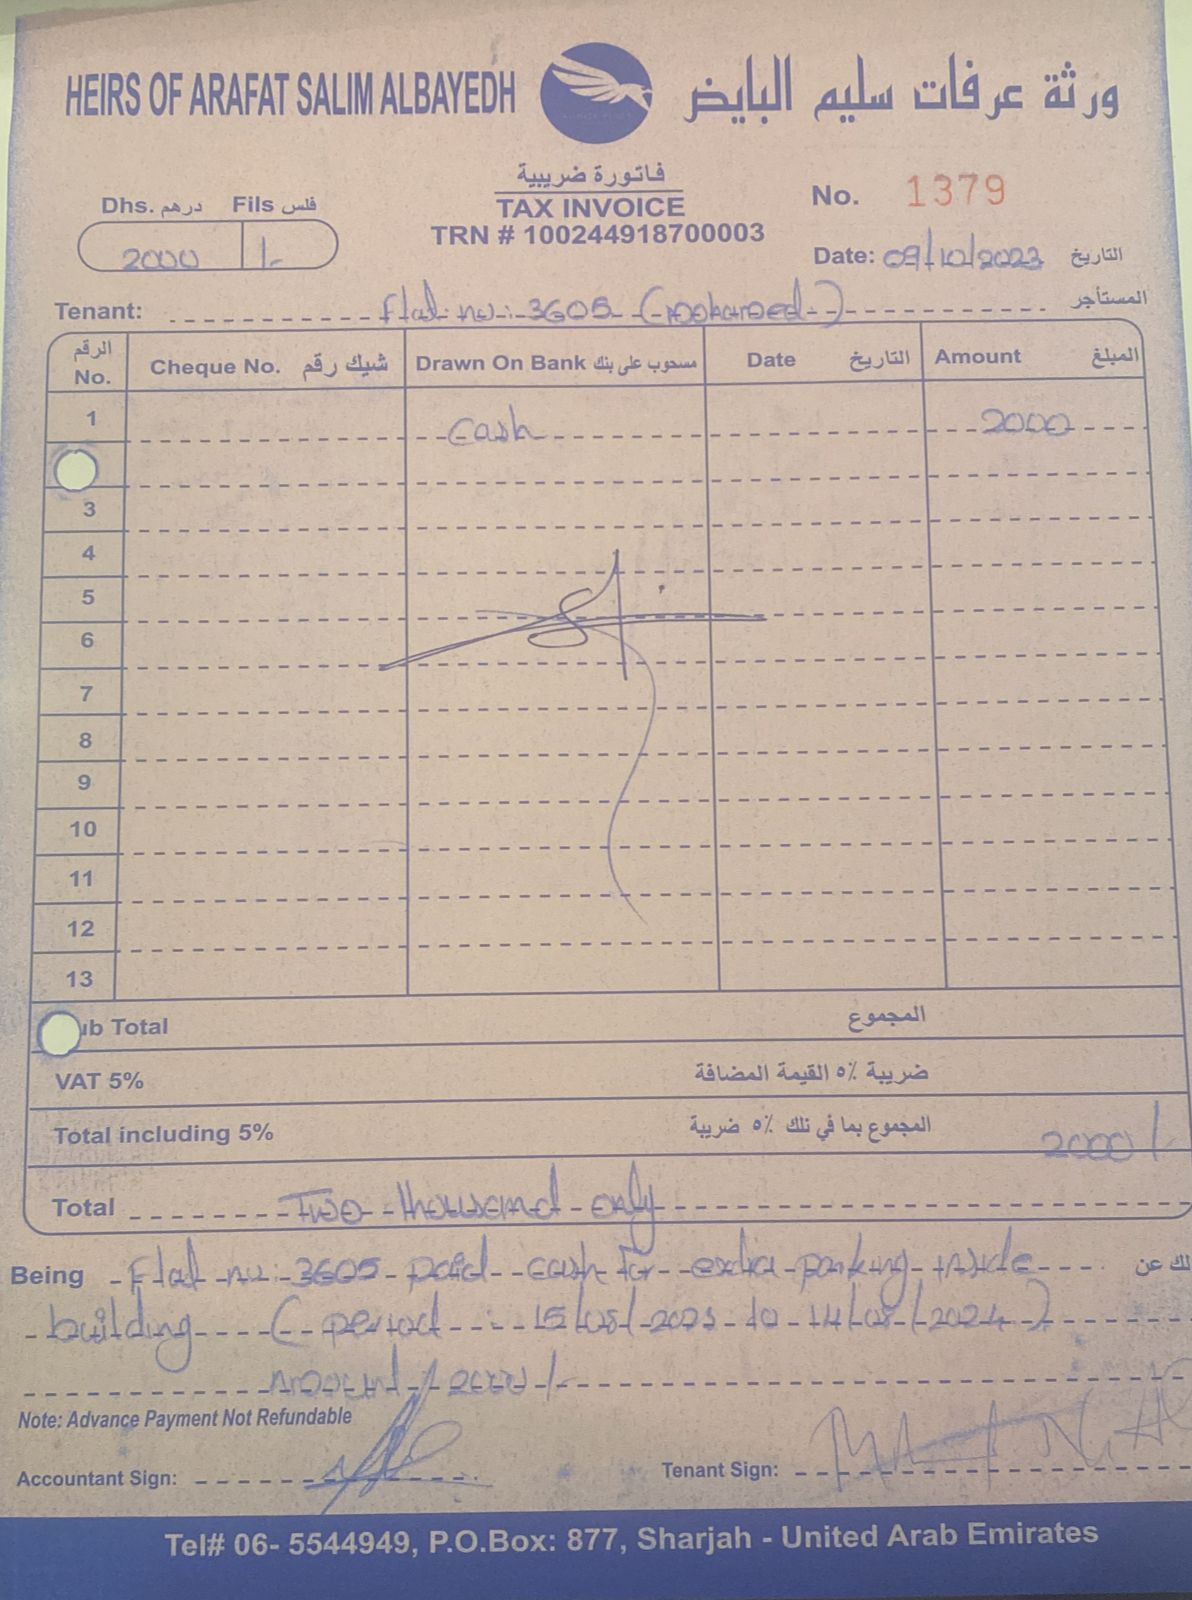 HEIRS OF ARAFAT SALIM ALBAYEDH
ورثة عرفات سليم البايض
فاتورة ضريبية
TAX INVOICE
TRN # 100244918700003
Dhs. درهم Fils فلس
2000 /-
No. 1379
Date: 09/10/2023 التاريخ
Tenant: Flat no: 3605 المستأجر
الرقم No. Cheque No. شيك رقم Drawn On Bank مسحوب على بنك Date التاريخ Amount المبلغ
1 Cash 2000
3
4
5
6
7
8
9
10
11
12
13
ub Total المجموع
VAT 5% ضريبة ٥٪ القيمة المضافة
Total including 5% المجموع بما في نلك ٥٪ ضريبة 2000/
Total Two thousand only
Being Flat no: 3605 paid cash for extra parking inside لك عن
building (period : 15/08/2023 to 14/08/2024)
amount / 2000/-
Note: Advance Payment Not Refundable
Accountant Sign: Tenant Sign:
Tel# 06- 5544949, P.O.Box: 877, Sharjah - United Arab Emirates